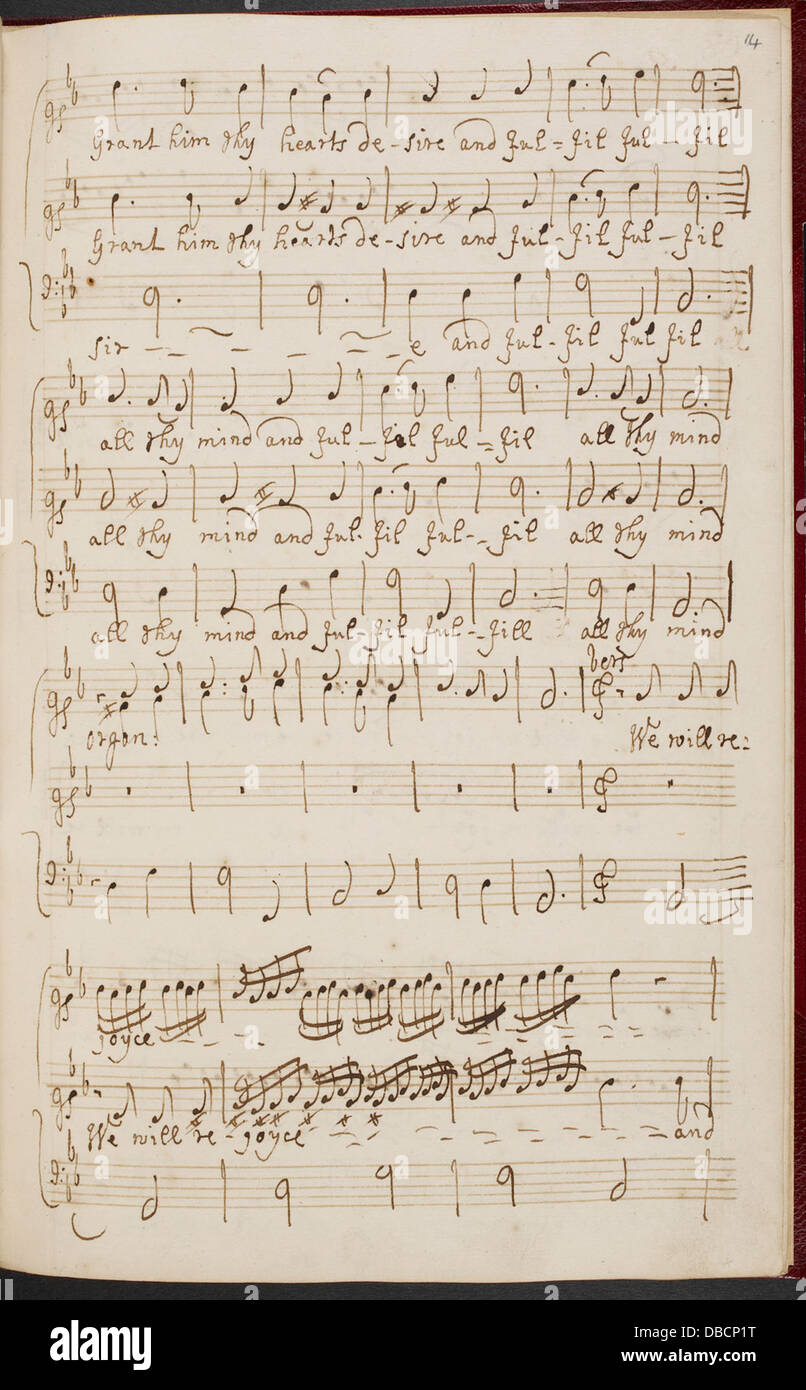 14
Grant him thy hearts de-sire and ful=fil ful-fil
Grant him thy hearts de-sire and ful-fil ful-fil
sir - - - - - - e and ful-fil ful fil
all thy mind and ful-fil ful-fil all thy mind
all thy mind and ful-fil ful--fil all thy mind
all thy mind and ful-fil ful--fill all thy mind
vers
organ: We will re:
joyce - - - - - - - - -
We will re-joyce - - - - - - - - - - and
alamy
Image ID: DBCP1T
www.alamy.com